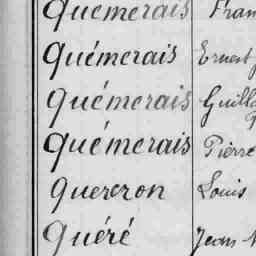 Quémerais Fran
Quémerais Ernest
Quémerais Guill
Quémerais Pierre
Querezon Louis
Quéré Jean